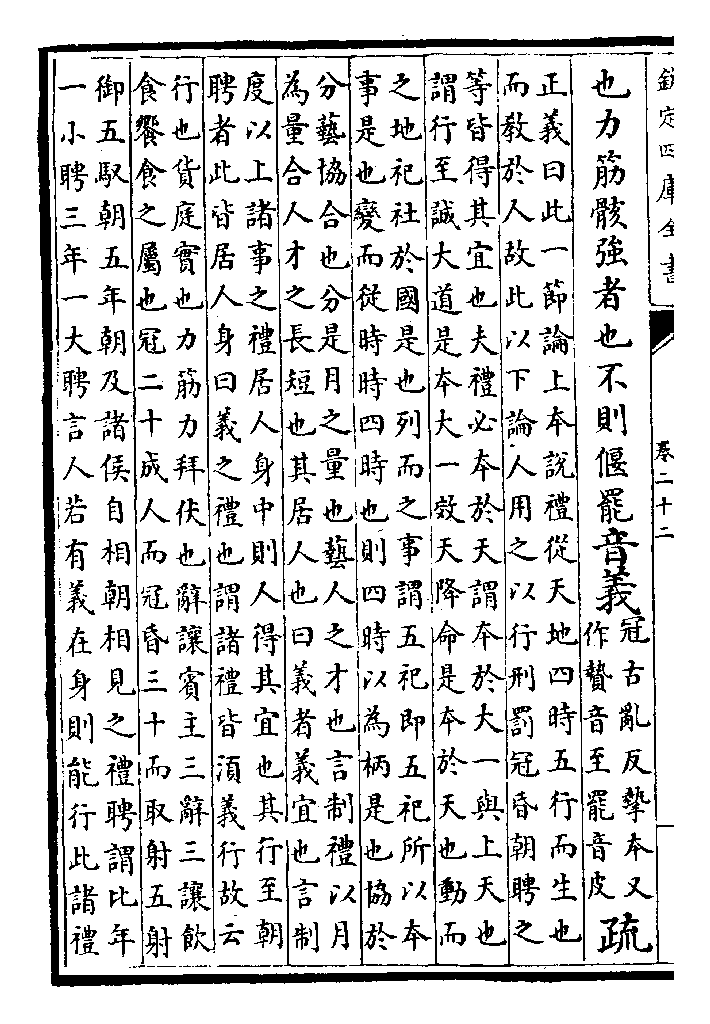 欽定四庫全書
卷二十二
也力筋骸強者也不則偃罷音義冠古亂反摯本又
作贄音至罷音皮疏
正義曰此一節論上本說禮從天地四時五行而生也
而教於人故此以下論人用之以行刑罰冠昏朝聘之
等皆得其宜也夫禮必本於天謂本於大一與上天也
謂行至誠大道是本大一效天降命是本於天也動而
之地祀社於國是也列而之事謂五祀即五祀所以本
事是也變而從時時四時也則四時以為柄是也協於
分藝協合也分是月之量也藝人之才也言制禮以月
為量合人才之長短也其居人也曰義者義宜也言制
度以上諸事之禮居人身中則人得其宜也其行至朝
聘者此皆居人身曰義之禮也謂諸禮皆湏義行故云
行也貨庭實也力筋力拜伏也辭讓賓主三辭三讓飲
食饗食之屬也冠二十成人而冠昏三十而取射五射
御五馭朝五年朝及諸侯自相朝相見之禮聘謂比年
一小聘三年一大聘言人若有義在身則能行此諸禮